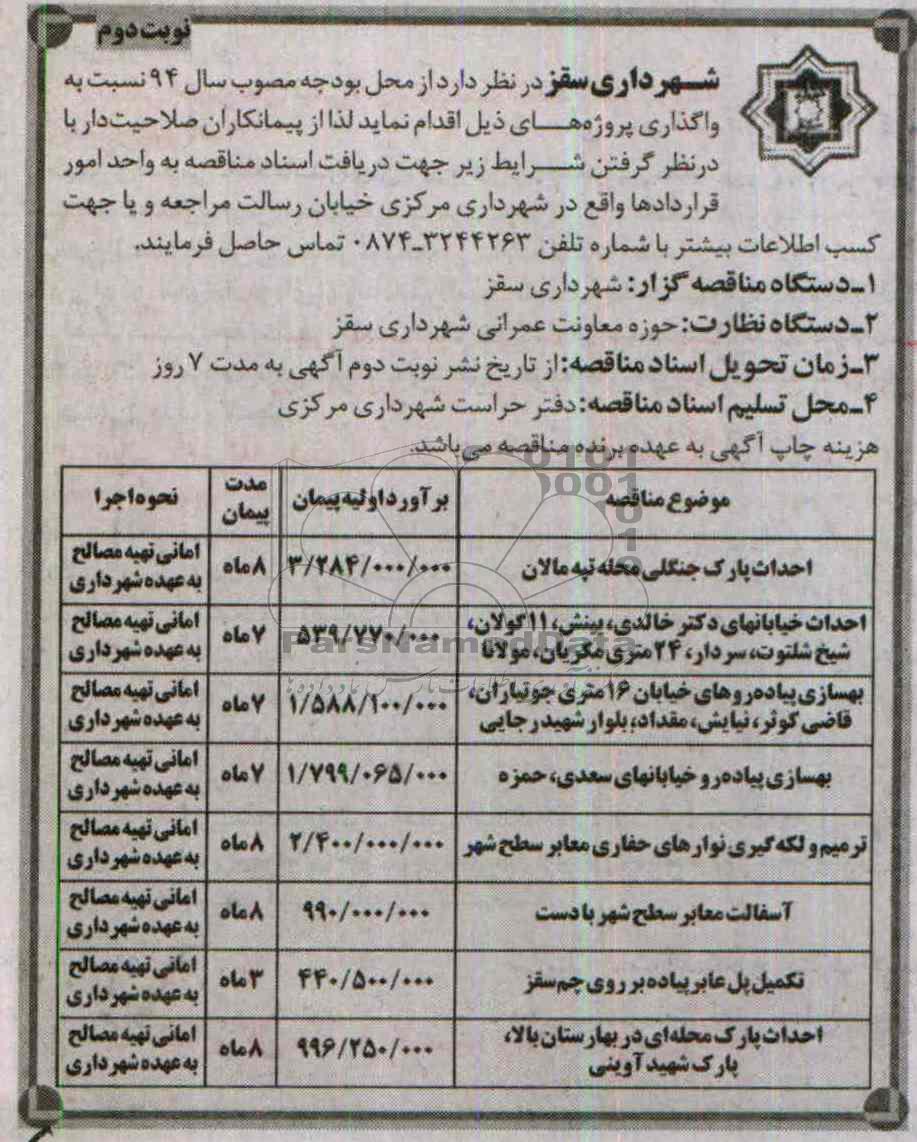 نوبت دوم
شهرداری سقز در نظر دارد از محل بودجه مصوب سال ۹۴ نسبت به
واگذاری پروژه‌های ذیل اقدام نماید لذا از پیمانکاران صلاحیت‌دار با
درنظر گرفتن شرایط زیر جهت دریافت اسناد مناقصه به واحد امور
قراردادها واقع در شهرداری مرکزی خیابان رسالت مراجعه و یا جهت
کسب اطلاعات بیشتر با شماره تلفن ۳۲۴۴۲۶۳-۰۸۷۴ تماس حاصل فرمایند.
۱-دستگاه مناقصه گزار: شهرداری سقز
۲-دستگاه نظارت: حوزه معاونت عمرانی شهرداری سقز
۳-زمان تحویل اسناد مناقصه: از تاریخ نشر نوبت دوم آگهی به مدت ۷ روز
۴-محل تسلیم اسناد مناقصه: دفتر حراست شهرداری مرکزی
هزینه چاپ آگهی به عهده برنده مناقصه می‌باشد.
موضوع مناقصه برآورد اولیه پیمان مدت پیمان نحوه اجرا
احداث پارک جنگلی محله تپه مالان ۳/۲۸۴/۰۰۰/۰۰۰ ۸ ماه امانی تهیه مصالح به عهده شهرداری
احداث خیابانهای دکتر خالدی، بینش، ۱۱ گولان، شیخ شلتوت، سردار، ۲۴ متری مکریان، مولانا ۵۳۹/۷۷۰/۰۰۰ ۷ ماه امانی تهیه مصالح به عهده شهرداری
بهسازی پیاده‌روهای خیابان ۱۶ متری جوتیاران، قاضی کوثر، نیایش، مقداد، بلوار شهید رجایی ۱/۵۸۸/۱۰۰/۰۰۰ ۷ ماه امانی تهیه مصالح به عهده شهرداری
بهسازی پیاده‌رو خیابانهای سعدی، حمزه ۱/۷۹۹/۰۶۵/۰۰۰ ۷ ماه امانی تهیه مصالح به عهده شهرداری
ترمیم و لکه گیری نوارهای حفاری معابر سطح شهر ۲/۴۰۰/۰۰۰/۰۰۰ ۸ ماه امانی تهیه مصالح به عهده شهرداری
آسفالت معابر سطح شهر با دست ۹۹۰/۰۰۰/۰۰۰ ۸ ماه امانی تهیه مصالح به عهده شهرداری
تکمیل پل عابر پیاده بر روی چم سقز ۴۴۰/۵۰۰/۰۰۰ ۳ ماه امانی تهیه مصالح به عهده شهرداری
احداث پارک محله‌ای در بهارستان بالا، پارک شهید آوینی ۹۹۶/۲۵۰/۰۰۰ ۸ ماه امانی تهیه مصالح به عهده شهرداری
ParsNamadData